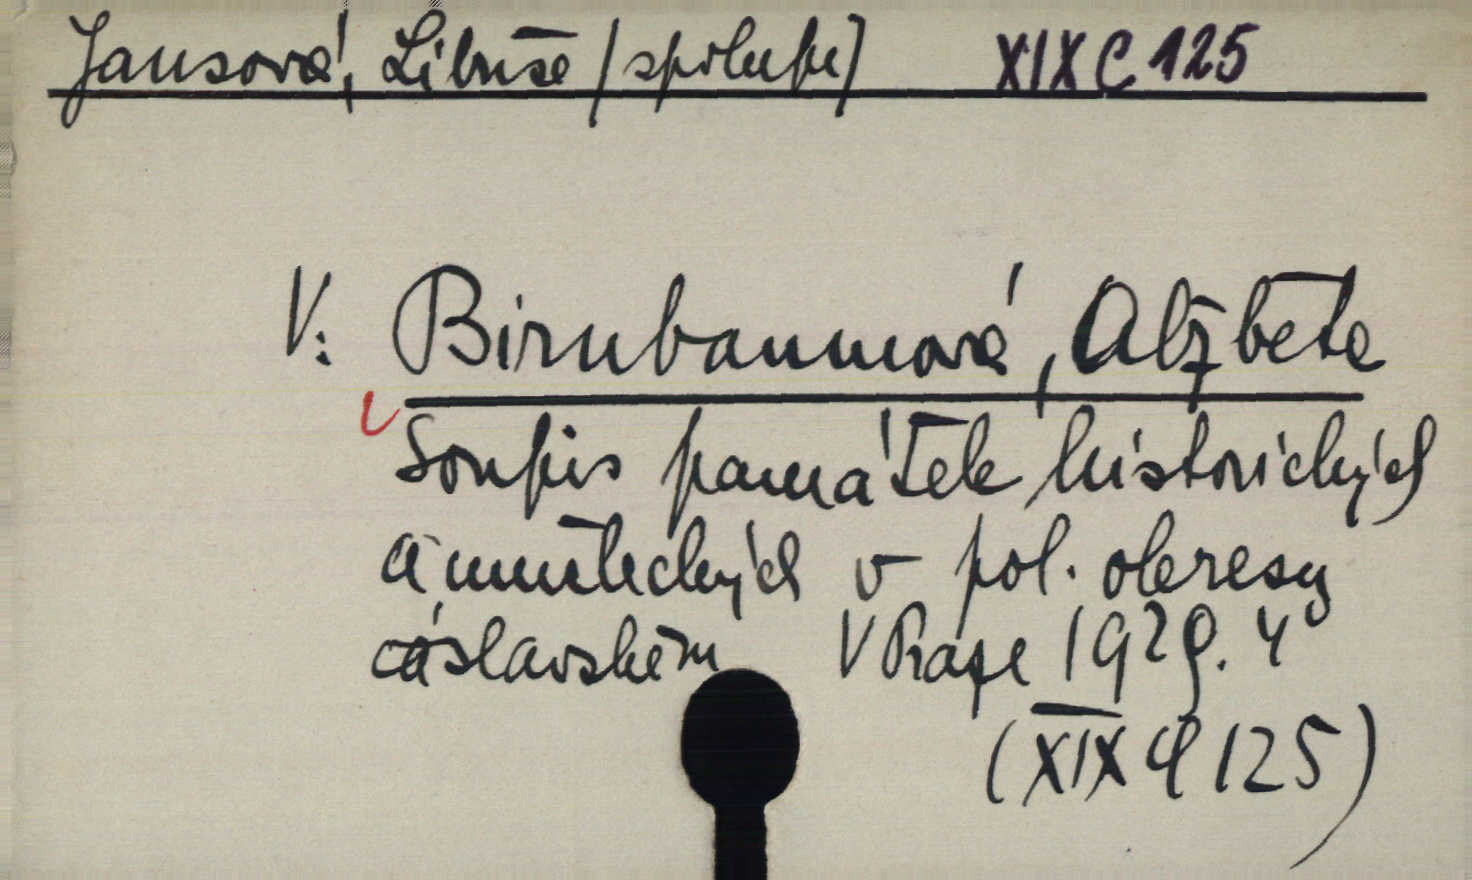 Jansová, Libuše /spolupr/ XIX C 125
V: Birnbaumová, Alžběta
Soupis památek historických
a uměleckých v pol. okresu
čáslavském V Praze 1929. 4°
(XIX C 125)